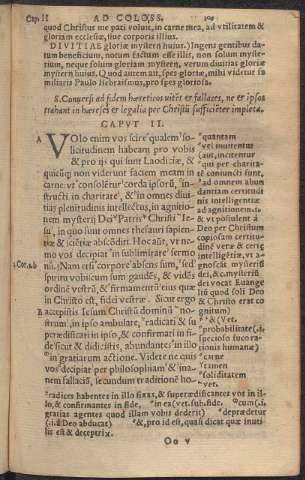 Cap II AD COLOSS.
quod Christus me pati voluit, in carne mea, ad vtilitatem &
gloriam ecclesiæ, siue corporis illius.
DIVITIAS gloriæ mysterij huius.) Ingens gentibus da-
tum beneficium, notum factum esse illis, non solum myste-
rium, neque solum gloriam mysterij, verum diuitias gloriæ
mysterij huius. Quod autem ait, spes gloriæ, mihi videtur so
militaris Paulo Hebraismus, pro spes gloriosa.
S. Conuersi ad fidem hæreticos vitēt & fallaces, ne & ipsos
trahant in hæreses & legalia per Christū sufficiēter impleta.
CAPVT II.
A VOlo enim vos scire qualem so-
licitudinem habeam pro vobis
& pro ijs qui sunt Laodiciæ, &
quicūq; non viderunt faciem meam in
carne: vt consolētur corda ipsorū, in-
structi in charitate, & in omnes diui-
tias plenitudinis intellectus, in agnitio-
nem mysterij Dei Patris Christi Ie-
su, in quo sunt omnes thesauri sapien-
tiæ & sciētiæ absconditi. Hoc aūt, vt ne-
mo vos decipiat in sublimitate sermo
1.Cor.5.b nū. Nam etsi corpore absens sum, sed
spiritu vobiscum sum gaudēs, & vidēs
ordinē vestrū, & firmamentū eius quæ
in Christo est, fidei vestræ. Sicut ergo
B accepistis Iesum Christū dominū no-
strum, in ipso ambulate, radicati & su
perædificati in ipso, & confirmati in fi-
de sicut & didicistis, abundantes in illo
in gratiarum actione. Videte ne quis
vos decipiat per philosophiam & ina-
nem fallaciā, secundum traditionē ho-
quantam
vel muniuntur
aut, incitentur
qui per charita-
tē coniuncti sunt,
ad omnem abun
dantiam certitudi
nis intelligentiæ
ad agnitionem.i.
vt potiusquā à
Deo per Christum
copiosam certitu-
dinē veræ & certę
intelligētiæ, vt a-
gnoscāt mysteriū
dei, & c. mysteriū
dei vocat Euange
liū quod soli Deo
& Christo erat co
gnitum)
& (Vet.
probabilitate (.i.
specioso fuco ra-
tionum humanæ)
carne
tamen
soliditatem
vet.
radices habentes in illo fixas, & superædificantes vos in il-
lo, & confirmantes in fide, in ea (vet. sub. fide. cum (.i.
gratias agentes quod illam vobis dederit) deprædetur
(.i. à Deo abducat) &, pro id est, quasi dicat quæ inuti-
lis est & deceptrix.
Oo v